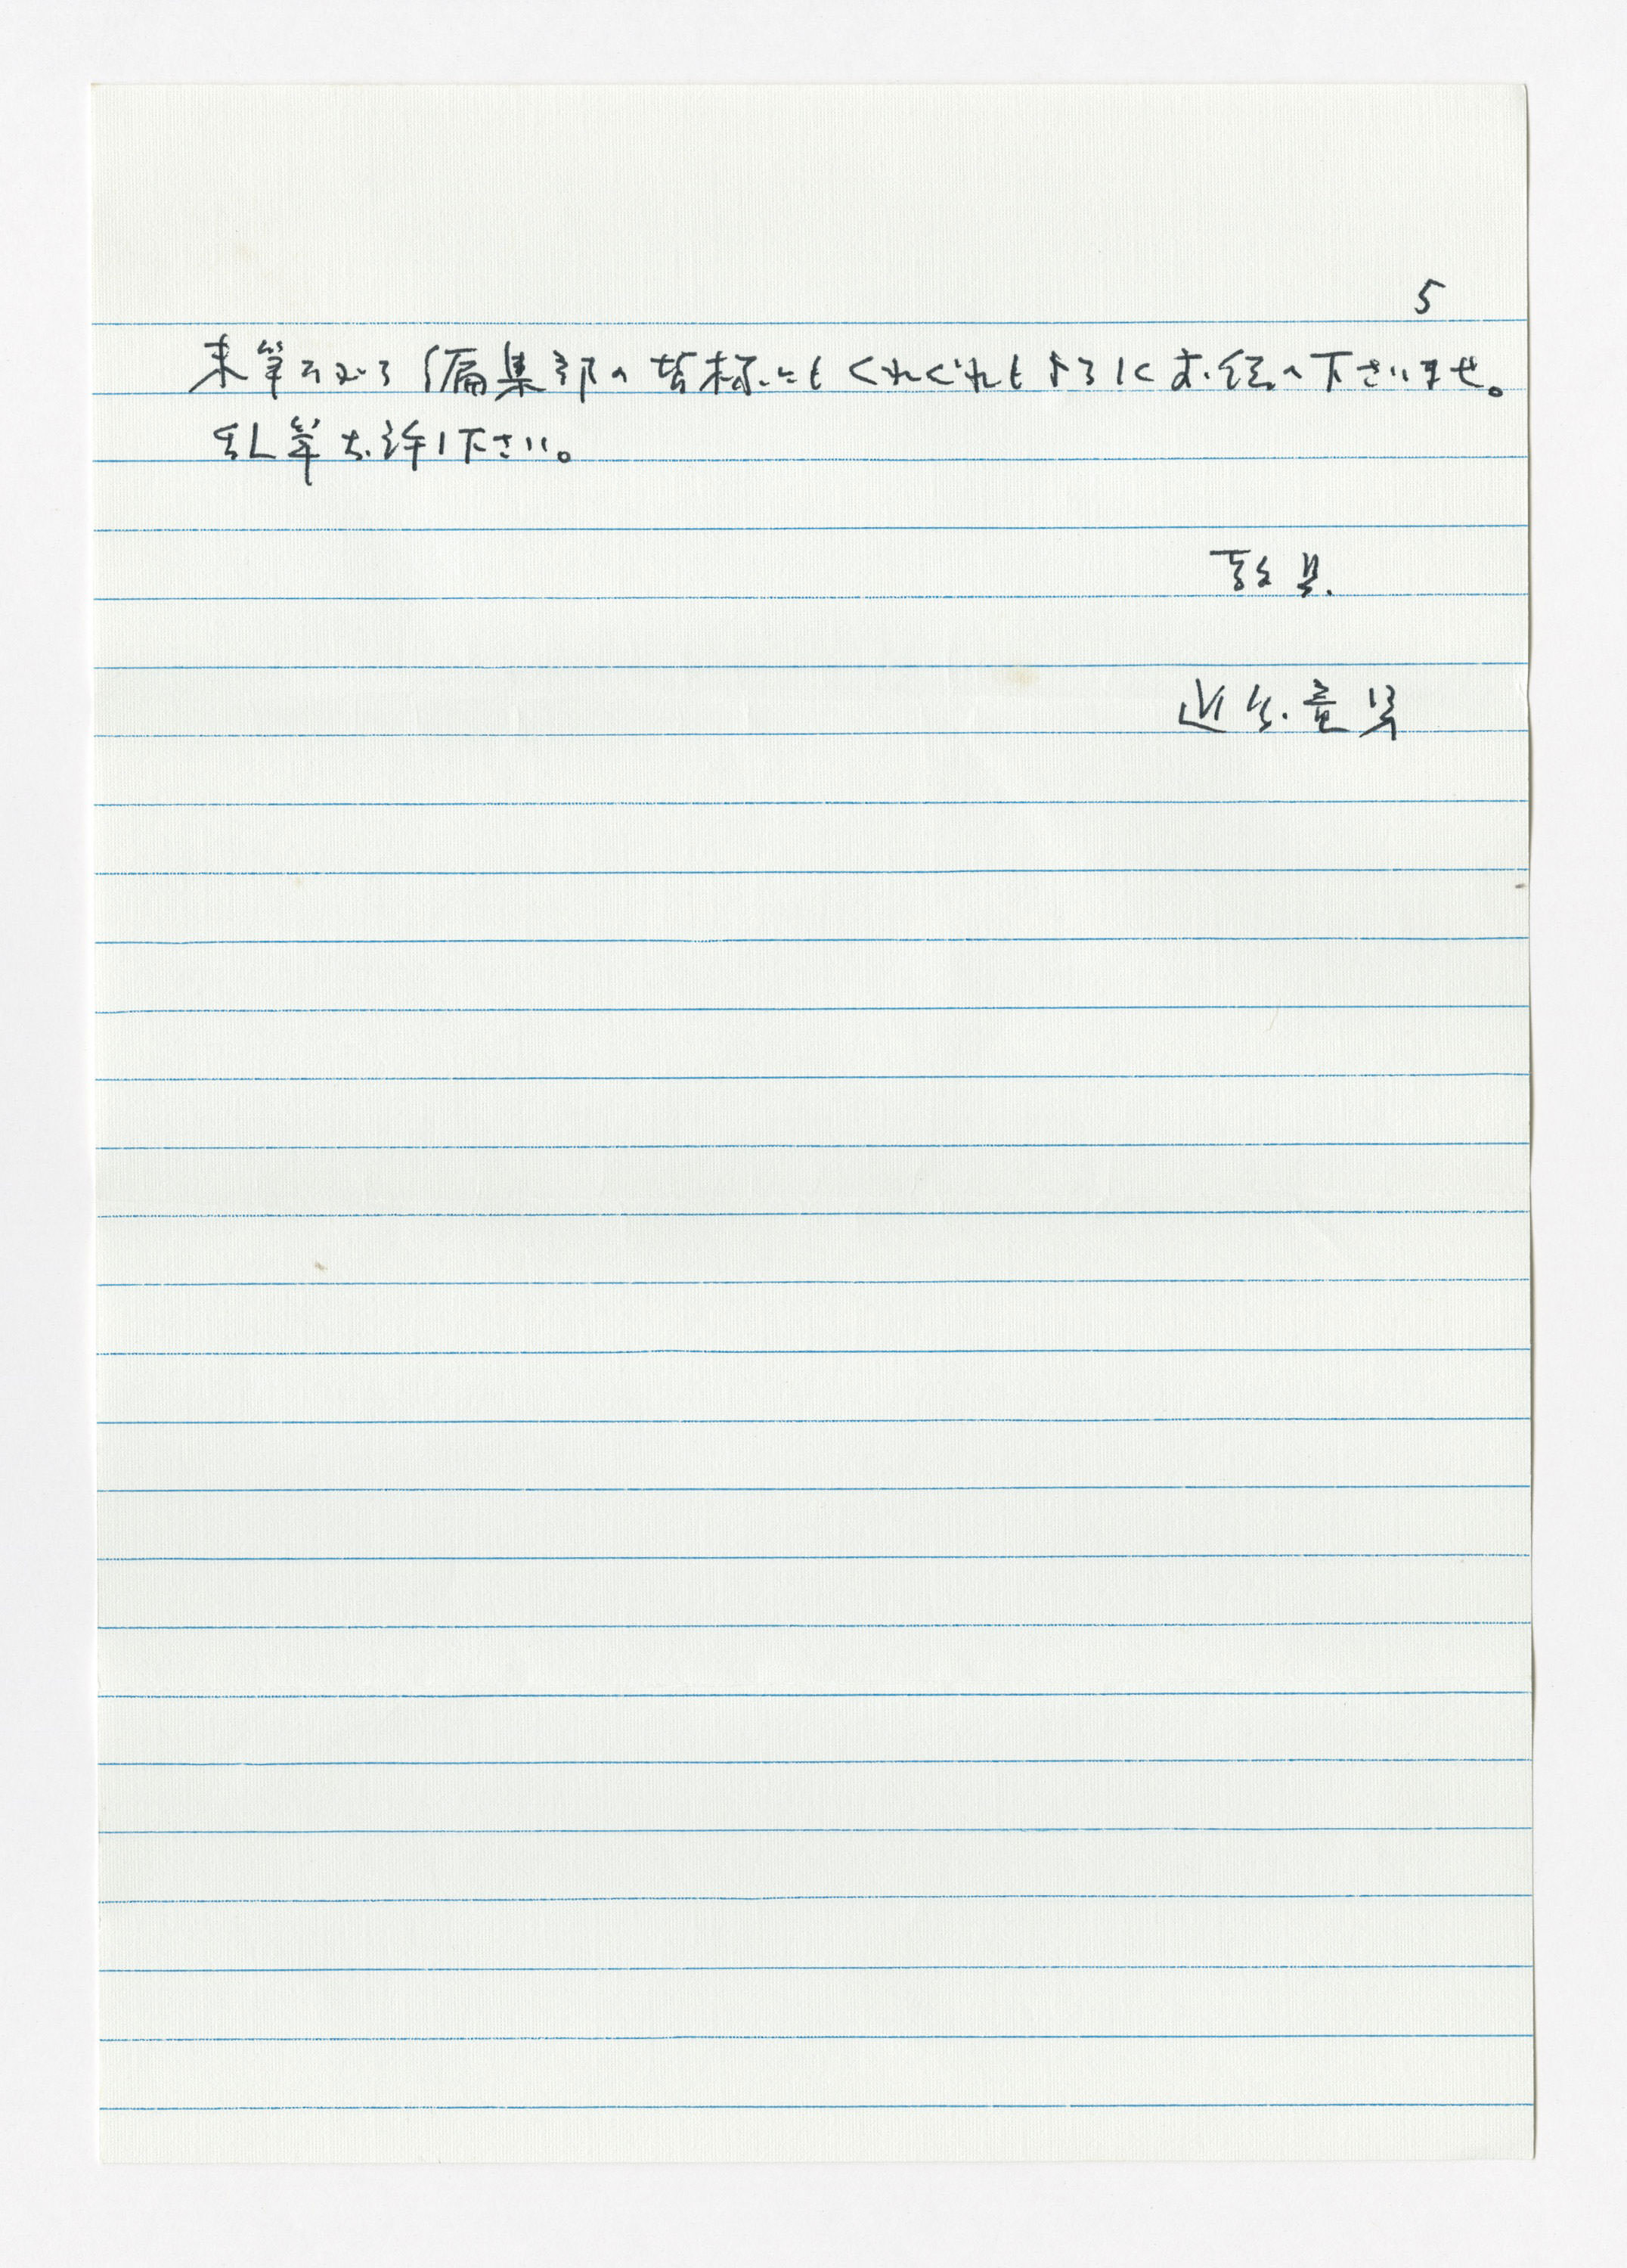 5
末筆ながら編集部の皆様にもくれぐれもよろしくお伝え下さいませ。
乱筆お許し下さい。
敬具.